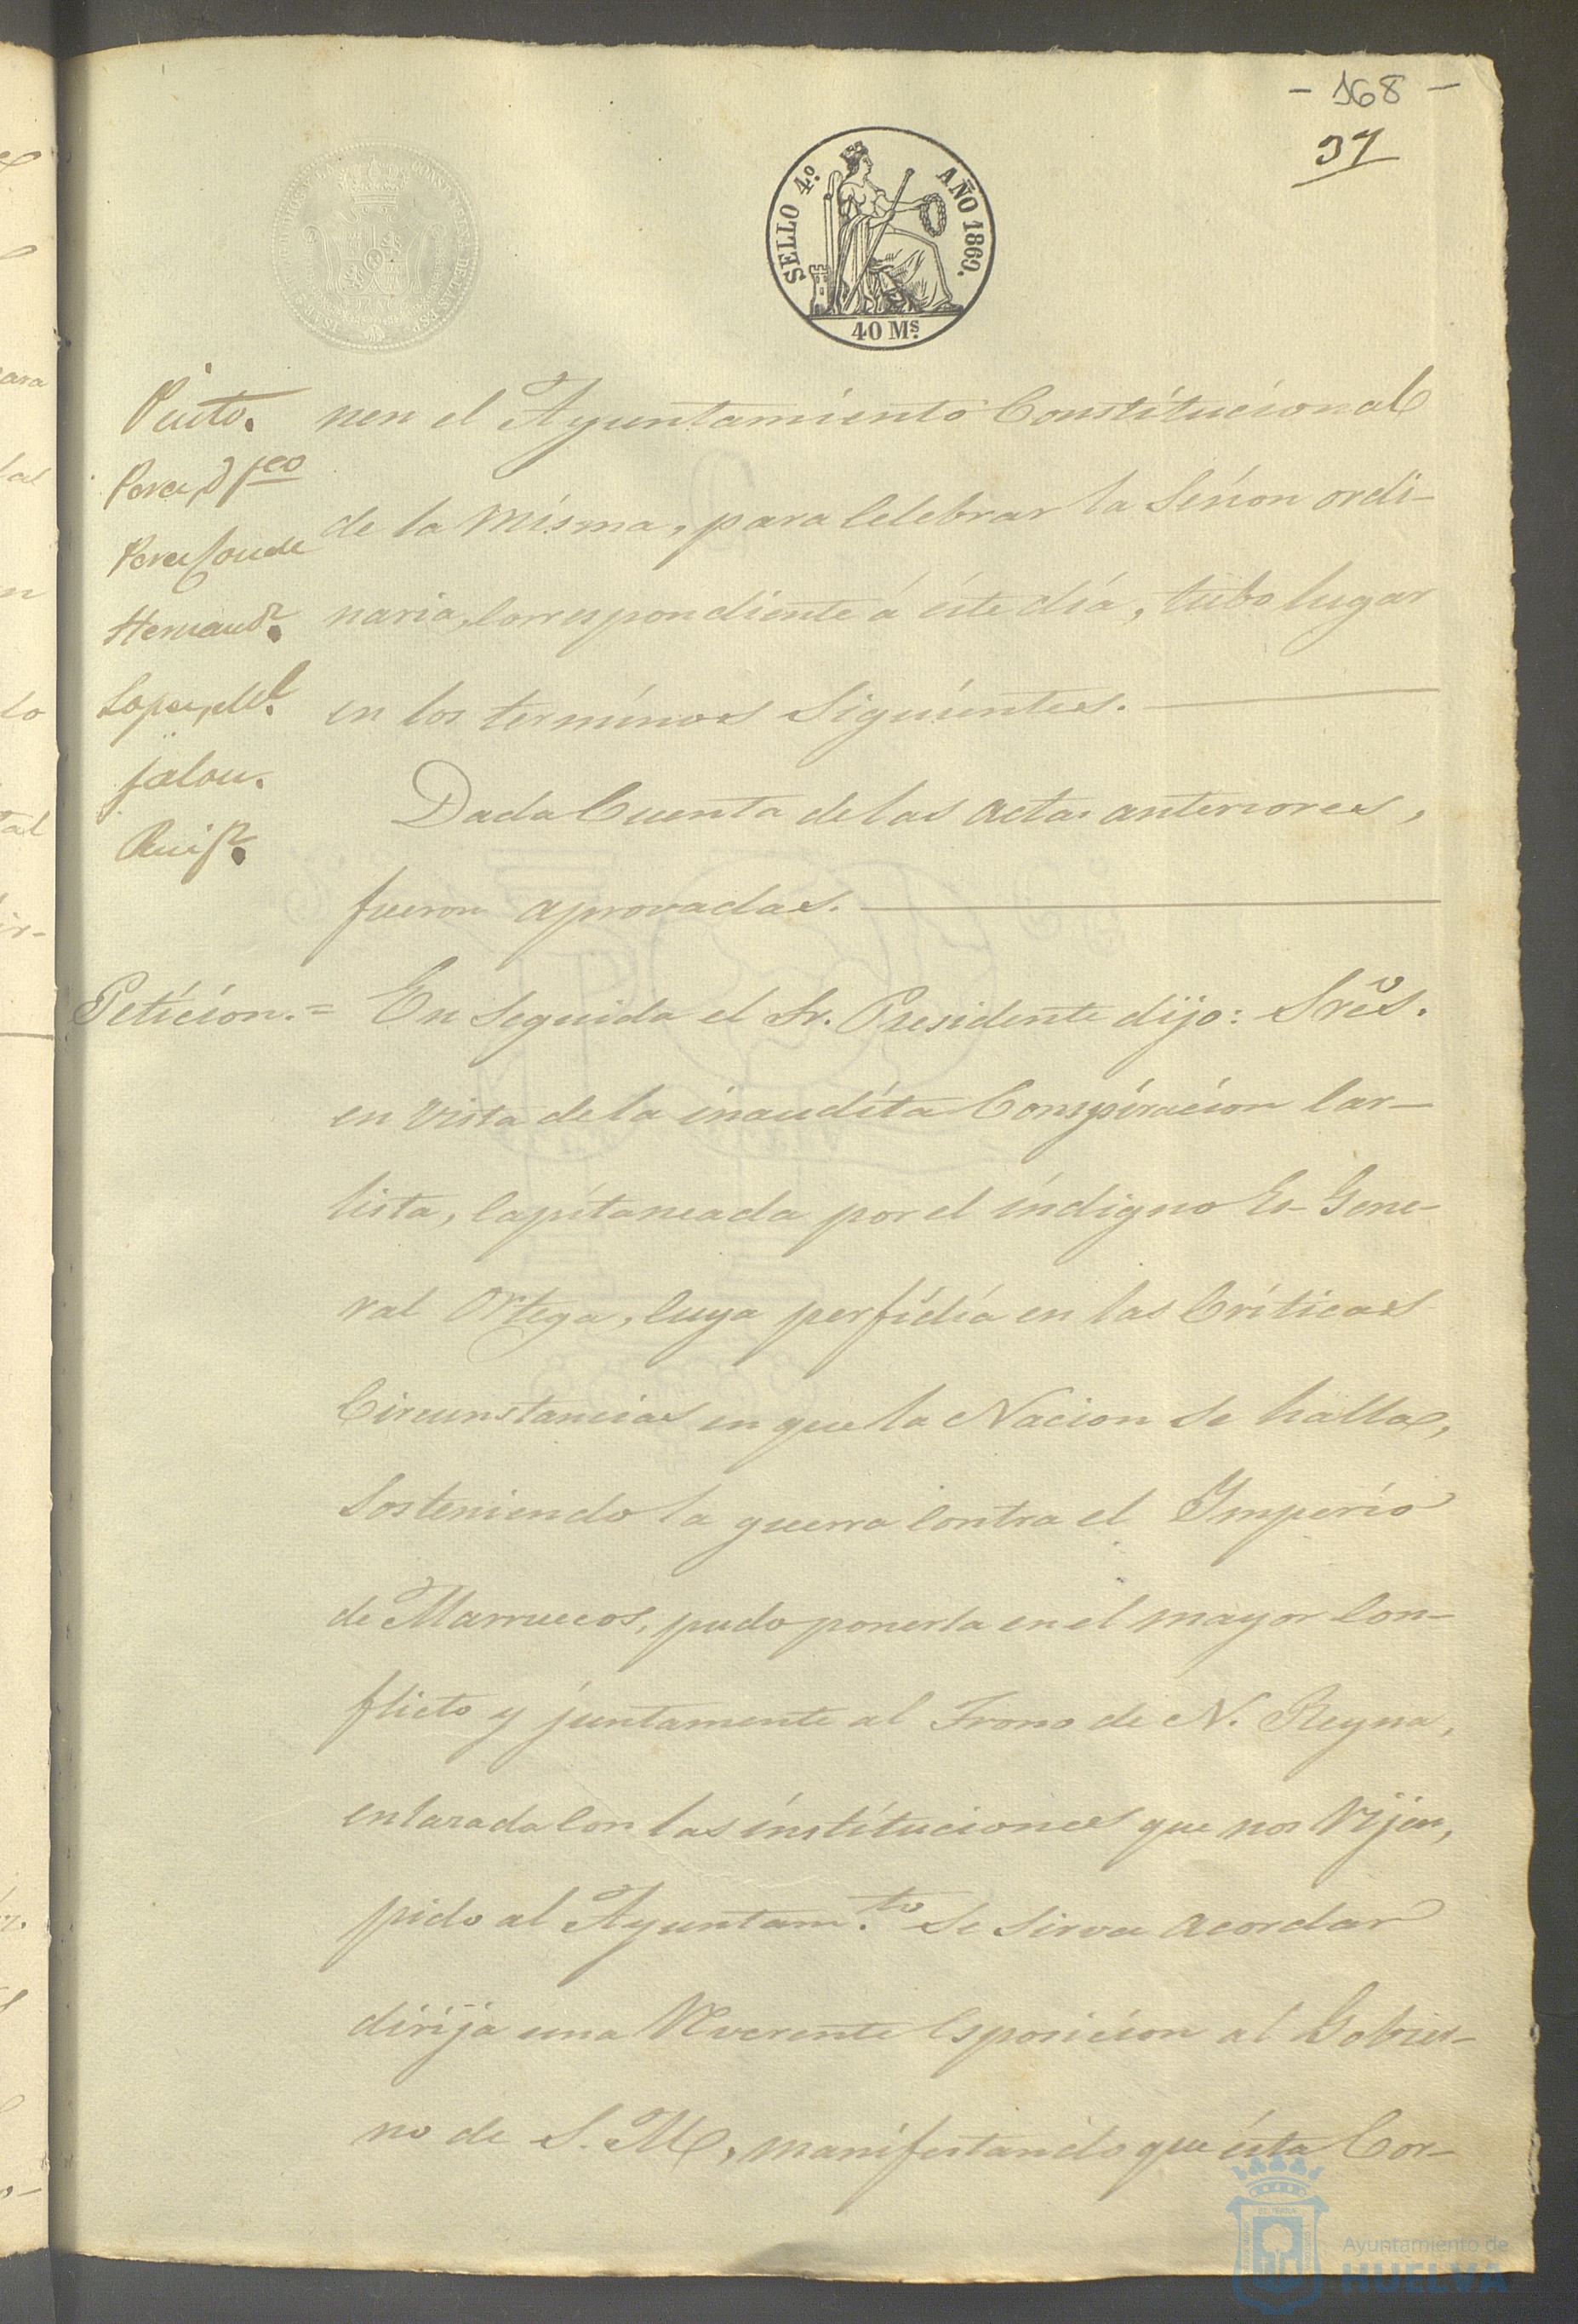 - 168 -
37
SELLO 4.º AÑO 1860.
40 Ms.
Pinto.
Perez, d. fco
Perez Conde
Hernandz.
Lopez, del.
jalon.
Ruifz.
nen el Ayuntamiento Constitucional
de la misma, para Celebrar la Sesion ordi-
naria, Correspondiente á éste dia, tubo lugar
en los terminos Siguientes.
Dada Cuenta de las actas anteriores,
fueron aprovadas.
Peticion.= En Seguida el Sr. Presidente dijo: Sres.
en vista de la inaudita Conspiracion Car-
lista, Capitaneada por el indigno Es-Gene-
ral Ortega, Cuya perfidia en las Criticas
Circunstancias en que la Nacion Se halla,
Sosteniendo la guerra Contra el Imperio
de Marruecos, pudo ponerla en el mayor Con-
flicto y juntamente al Trono de N. Reyna,
enlazada Con las instituciones que nos Rijen,
pido al Ayuntam.to Se Sirva acordar
dirija una Reverente Esposicion al Gobier-
no de S. M., manifestando que ésta Cor-
Ayuntamiento de
HUELVA